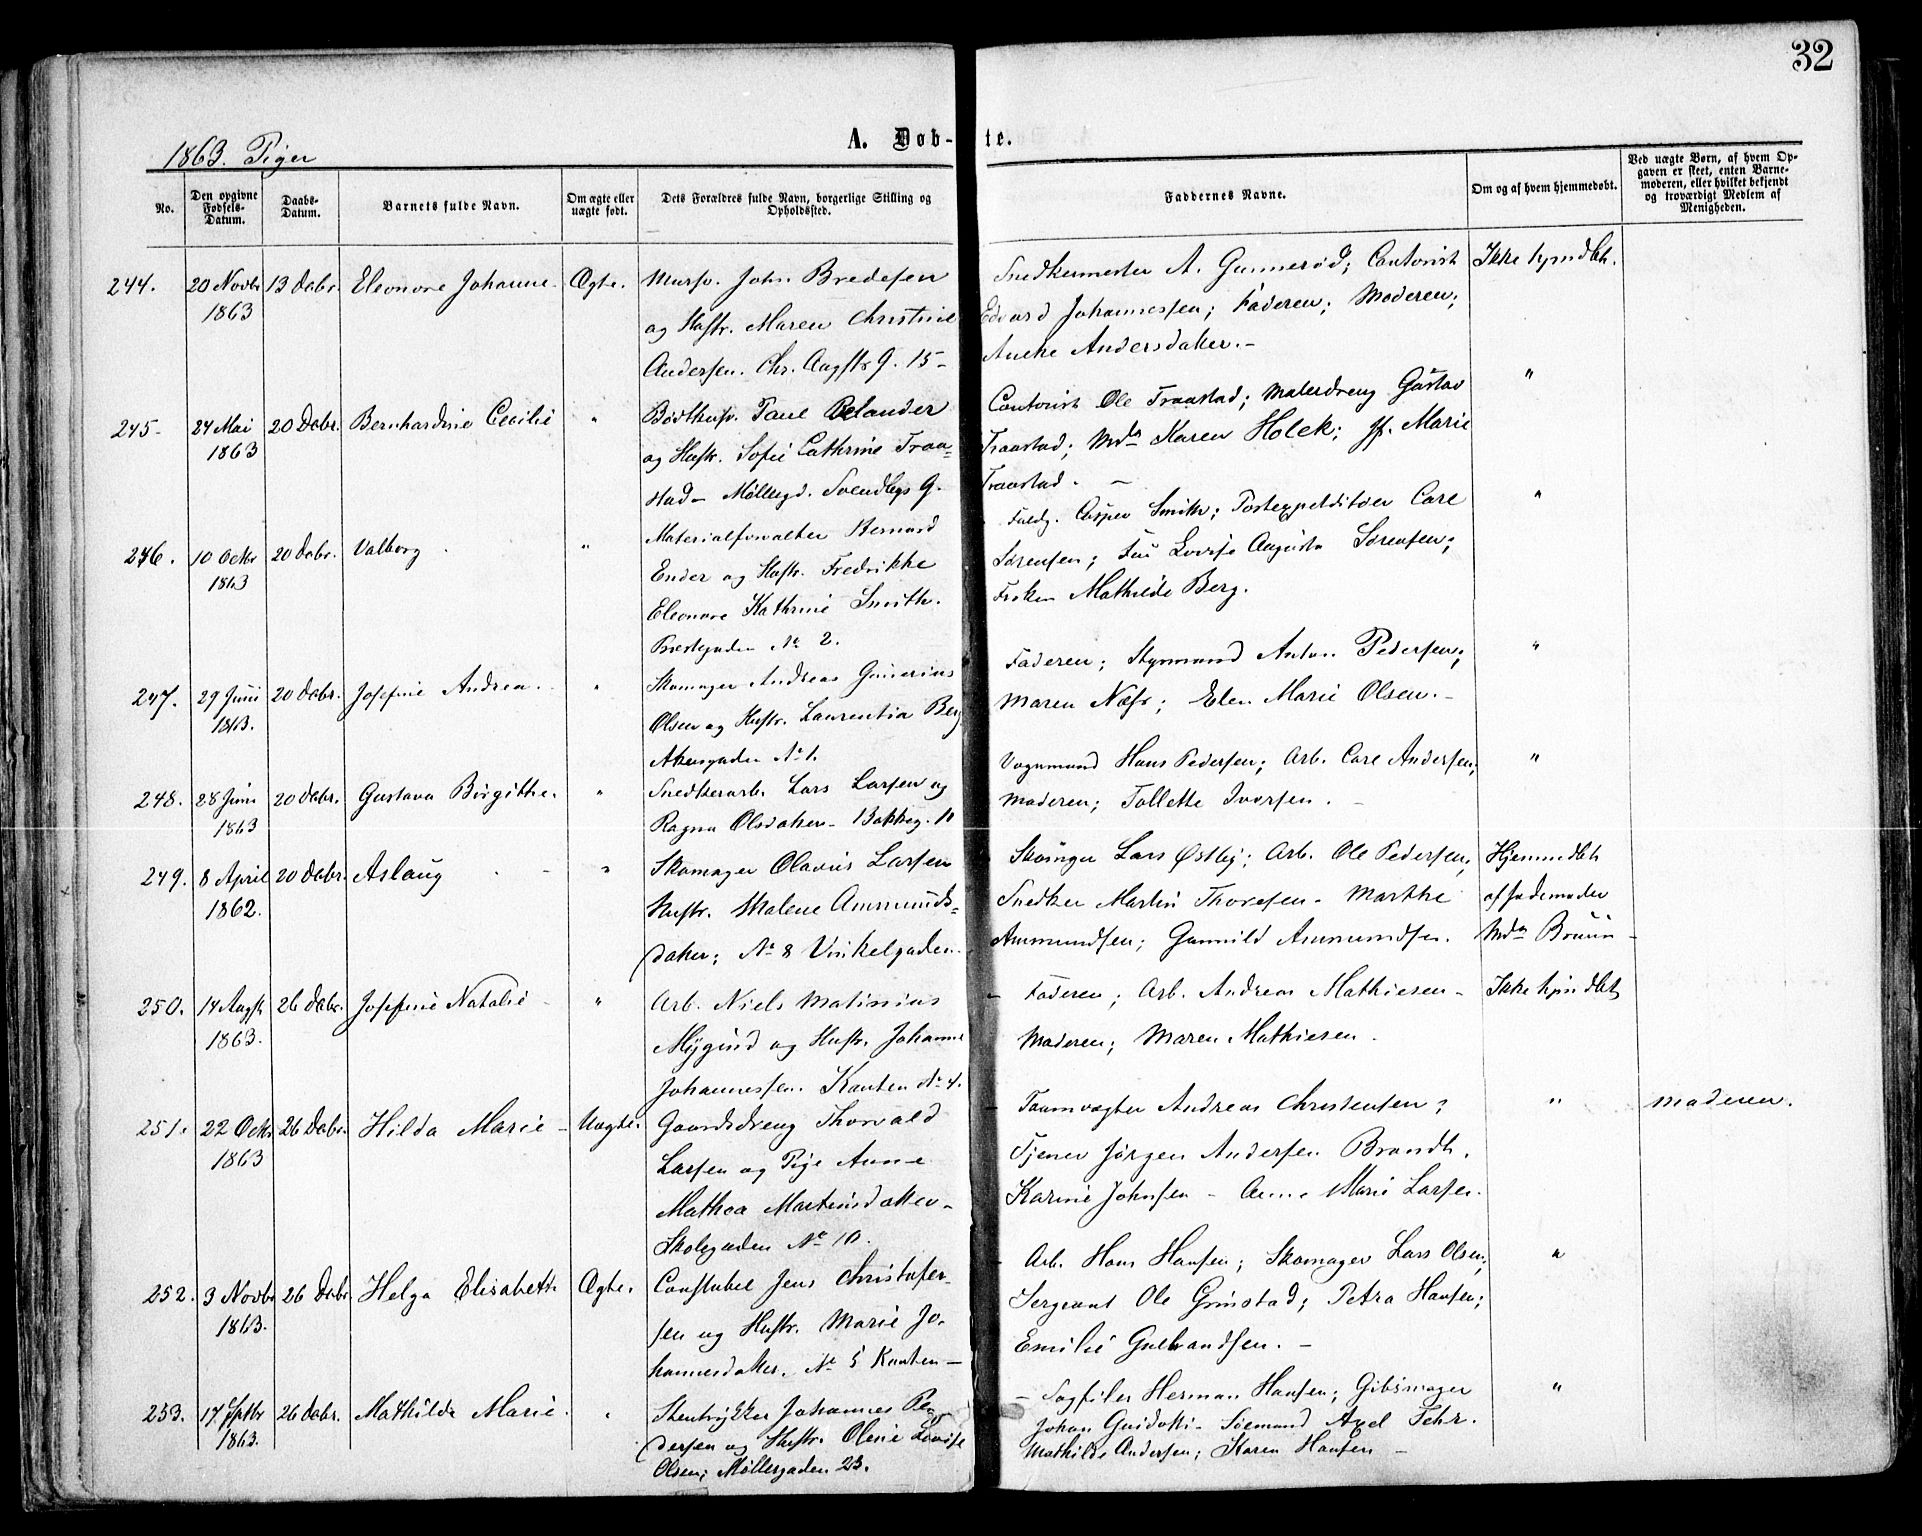 32
1863. Piger
A. Døb-te.
No.
Den opgivne Fødsels-Datum.
Daabs-Datum.
Barnets fulde Navn.
Om ægte eller uægte født.
Dets Forældres fulde Navn, borgerlige Stilling og Opholdssted.
Faddernes Navne.
Om og af hvem hjemmedøbt.
Ved uægte Børn, af hvem Opgaven er skeet, enten Barnemoderen, eller hvilket bekjendt og troværdigt Medlem af Menigheden.
244. 20 Novbr 13 Debr. Eleonore Johanne. Ægte. Mursv. Joh. Bredesen Snedkermester A. Gunnerød; Contorist Ikke hjmdbt.
1863 og Hustr. Maren Christine Edvard Johannessen; Faderen; Moderen;
Andersen. Chr. Augsts G. 15 - Anette Andersdatter. -
245 - 24 Mai 20 Debr. Bernhardine Cecilie " Bødthusv. Paul Relander Contorist Ole Traastad; Malerdreng Gustav "
1863 og Hustr. Sofie Cathrine Traa= Traastad; Mda Karen Holck; Jf. Marie
stad - Møllegd. Svendbgs G. Traastad. -
246. 10 Octbr 20 Debr. Valborg " Materialforvalter Bernard Fuldm. Casper Smith; Postexpeditøer Carl "
1863 Ender og Hustr. Fredrikke Sørensen; Fru Lovise Augusta Sørensen;
Eleonore Kathrine Smith. Frøken Mathilde Berg.
Prestegaden No 2.
247. 29 Juni 20 Debr. Josefine Andrea. " Skomager Andreas Gunerius Faderen; Styrmand Anton Pedersen; "
1863. Olsen og Hustr. Laurentia Berg Maren Næss; Elen Marie Olsen. -
Akersgaden No 1.
248. 28 Juni 20 Debr. Gustava Birgithe. " Snedkerarb. Lars Larsen og Vognmand Hans Pedersen; Arb. Carl Andersen; "
1863 Ragna Olsdatter - Bakkeg. 10 Moderen; Tollette Iversen. -
249. 8 April 20 Debr. Aslaug " Skomager Olavus Larsen Skomager Lars Østby; Arb. Ole Pedersen; Hjemmedbt
1862. Hustr. Malene Ammunds= Snedker Martin Thoresen - Marthe af Jordemoder
datter; No 8 Vinkelgaden. Ammundsen; Gunnild Ammundsen. Mda Bruun -
250. 14 Augst 26 Debr. Josefine Natalie " Arb. Niels Matinius - Faderen; Arb. Andreas Mathiesen - Ikke hjmdbt
1863. Mygind og Hustr. Johanne Moderen; Maren Mathiesen.
Johannessen. Kanten No 4.
251. 22 Octbr 26 Debr. Hilda Marie - Uægte. Gaardsdreng Thorvald - Taarnvægter Andreas Christensen; " Moderen.
1863 Larsen og Pige Anne Tjener Jørgen Andersen Brandt.
Mathea Martinsdatter - Karine Johnsen - Anne Marie Larsen.
Skolegaden No 10.
252. 3 Novbr 26 Debr. Helga Elisabeth Ægte. Constabel Jens Christofer- - Arb. Hans Hansen; Skomager Lars Olsen; "
1863. sen og Hustr. Marie Jo. Sergeant Ole Grinstad; Petra Hansen;
hannesdatter. No 5 Kanten - Emilie Gulbrandsen. -
253. 17 Sptbr 26 Debr. Mathilda Marie. " Stentrykker Johannes Pe- - Sagfiler Herman Hansen; Gibsmager "
1863. dersen og Hustr. Oline Lovise Johan Guidotti - Søemand Axel Fehr.
Olsen; Møllergaden 23. Mathilde Andersen; Karen Hansen -